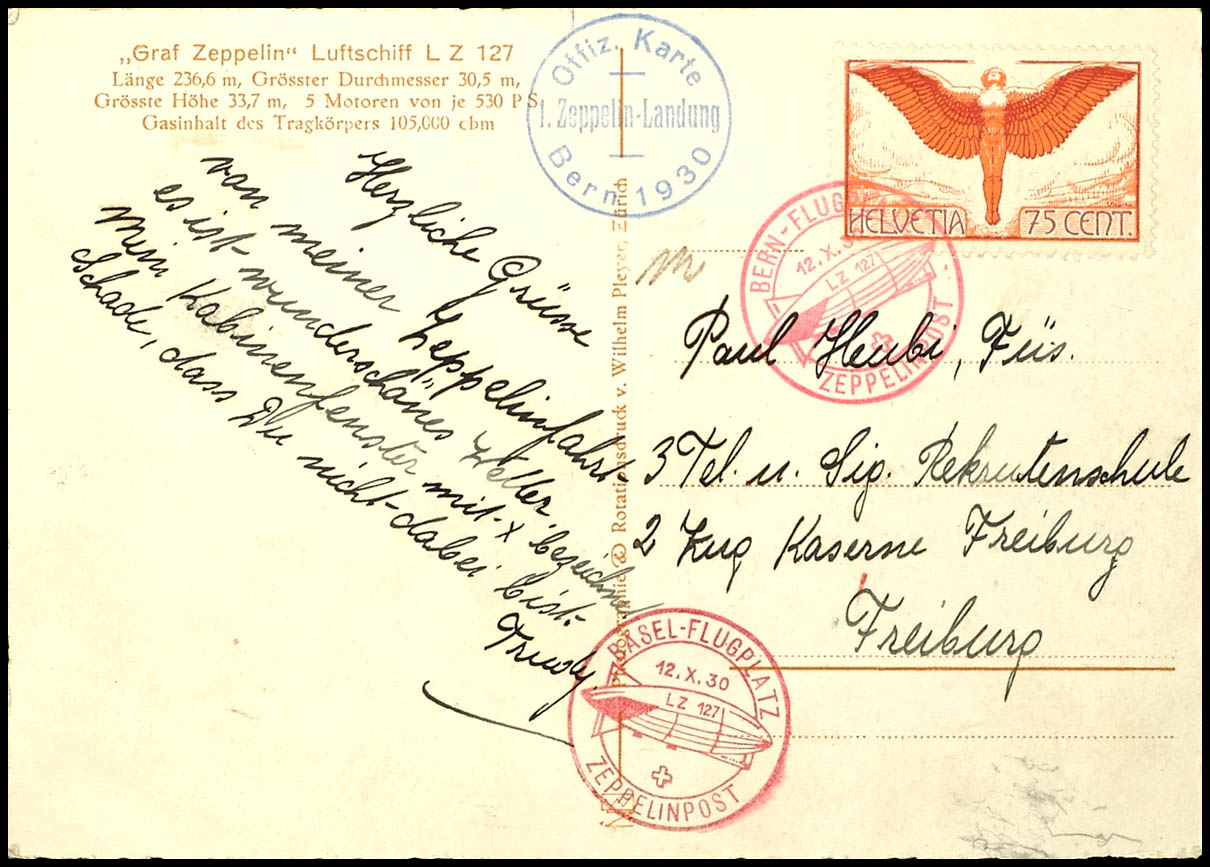 „Graf Zeppelin“ Luftschiff L Z 127
Länge 236,6 m, Grösster Durchmesser 30,5 m,
Grösste Höhe 33,7 m, 5 Motoren von je 530 P S
Gasinhalt des Tragkörpers 105,000 cbm
Offiz. Karte
1. Zeppelin-Landung
Bern 1930
HELVETIA 75 CENT.
BERN-FLUG
12.X.3
LZ 127
ZEPPELINPOST
Herzliche Grüsse
von meiner Zeppelinfahrt,
es ist wunderschönes Wetter.
Mein Kabinenfenster mit x bezeichnet
Schade, dass Du nicht dabei bist.
Trudy.
Paul Heubi, Füs.
3 Tel. u. Sig. Rekrutenschule
2 Zug Kaserne Freiburg
Freiburg
Rotationsdruck v. Wilhelm Pleyer, Zürich
BASEL-FLUGPLATZ
12.X.30
LZ 127
ZEPPELINPOST